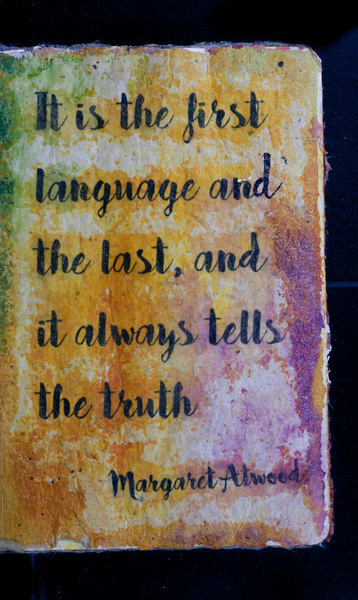 It is the first
language and
the last, and
it always tells
the truth
Margaret Atwood